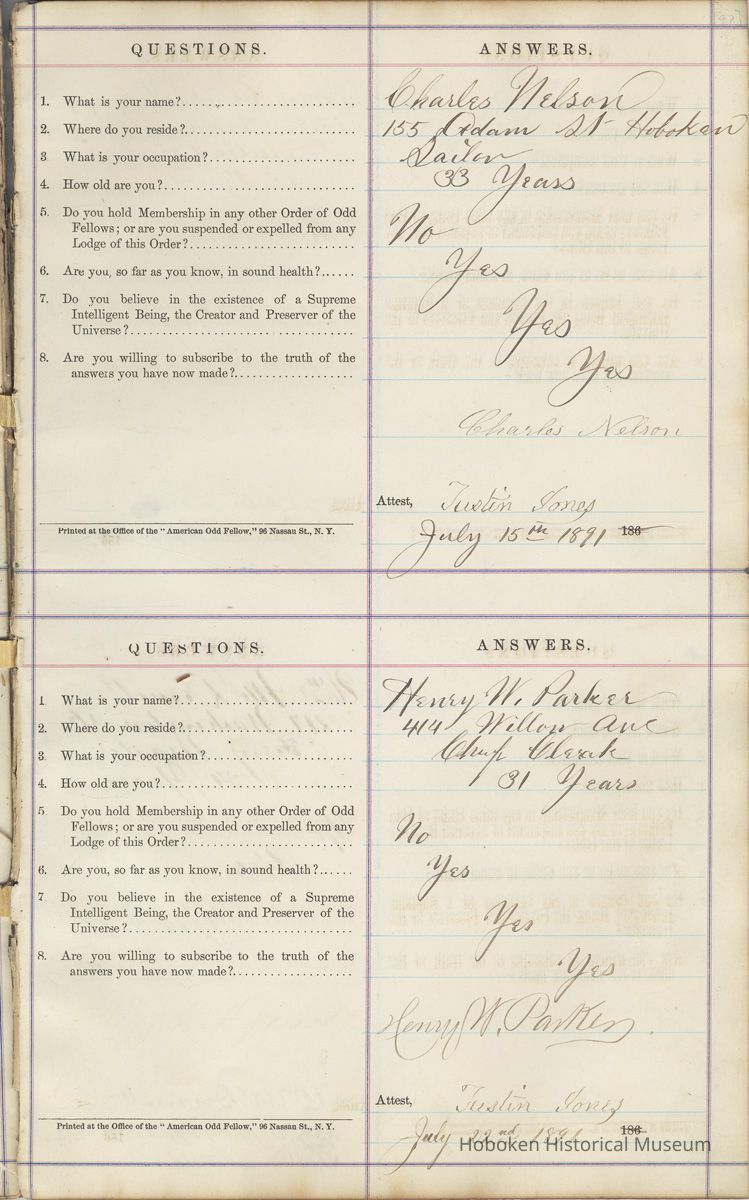 QUESTIONS.
ANSWERS.
1. What is your name?
Charles Nelson
2. Where do you reside?
155 Adam St Hoboken
3 What is your occupation?
Sailor
4. How old are you?
33 Years
5. Do you hold Membership in any other Order of Odd
Fellows; or are you suspended or expelled from any
Lodge of this Order?
No
6. Are you, so far as you know, in sound health?
Yes
7. Do you believe in the existence of a Supreme
Intelligent Being, the Creator and Preserver of the
Universe?
Yes
8. Are you willing to subscribe to the truth of the
answers you have now made?
Yes
Charles Nelson
Attest, Justin Jones
Printed at the Office of the "American Odd Fellow," 96 Nassau St., N. Y.
July 15th 1891 186
QUESTIONS.
ANSWERS.
1 What is your name?
Henry W. Parker
2. Where do you reside?
414 Willow Ave
3. What is your occupation?
Clerk
4. How old are you?
31 Years
5 Do you hold Membership in any other Order of Odd
Fellows; or are you suspended or expelled from any
Lodge of this Order?
No
6. Are you, so far as you know, in sound health?
Yes
7 Do you believe in the existence of a Supreme
Intelligent Being, the Creator and Preserver of the
Universe?
Yes
8. Are you willing to subscribe to the truth of the
answers you have now made?
Yes
Henry W. Parker.
Attest, Justin Jones
Printed at the Office of the "American Odd Fellow," 96 Nassau St., N. Y.
July 22nd 1891 186
Hoboken Historical Museum